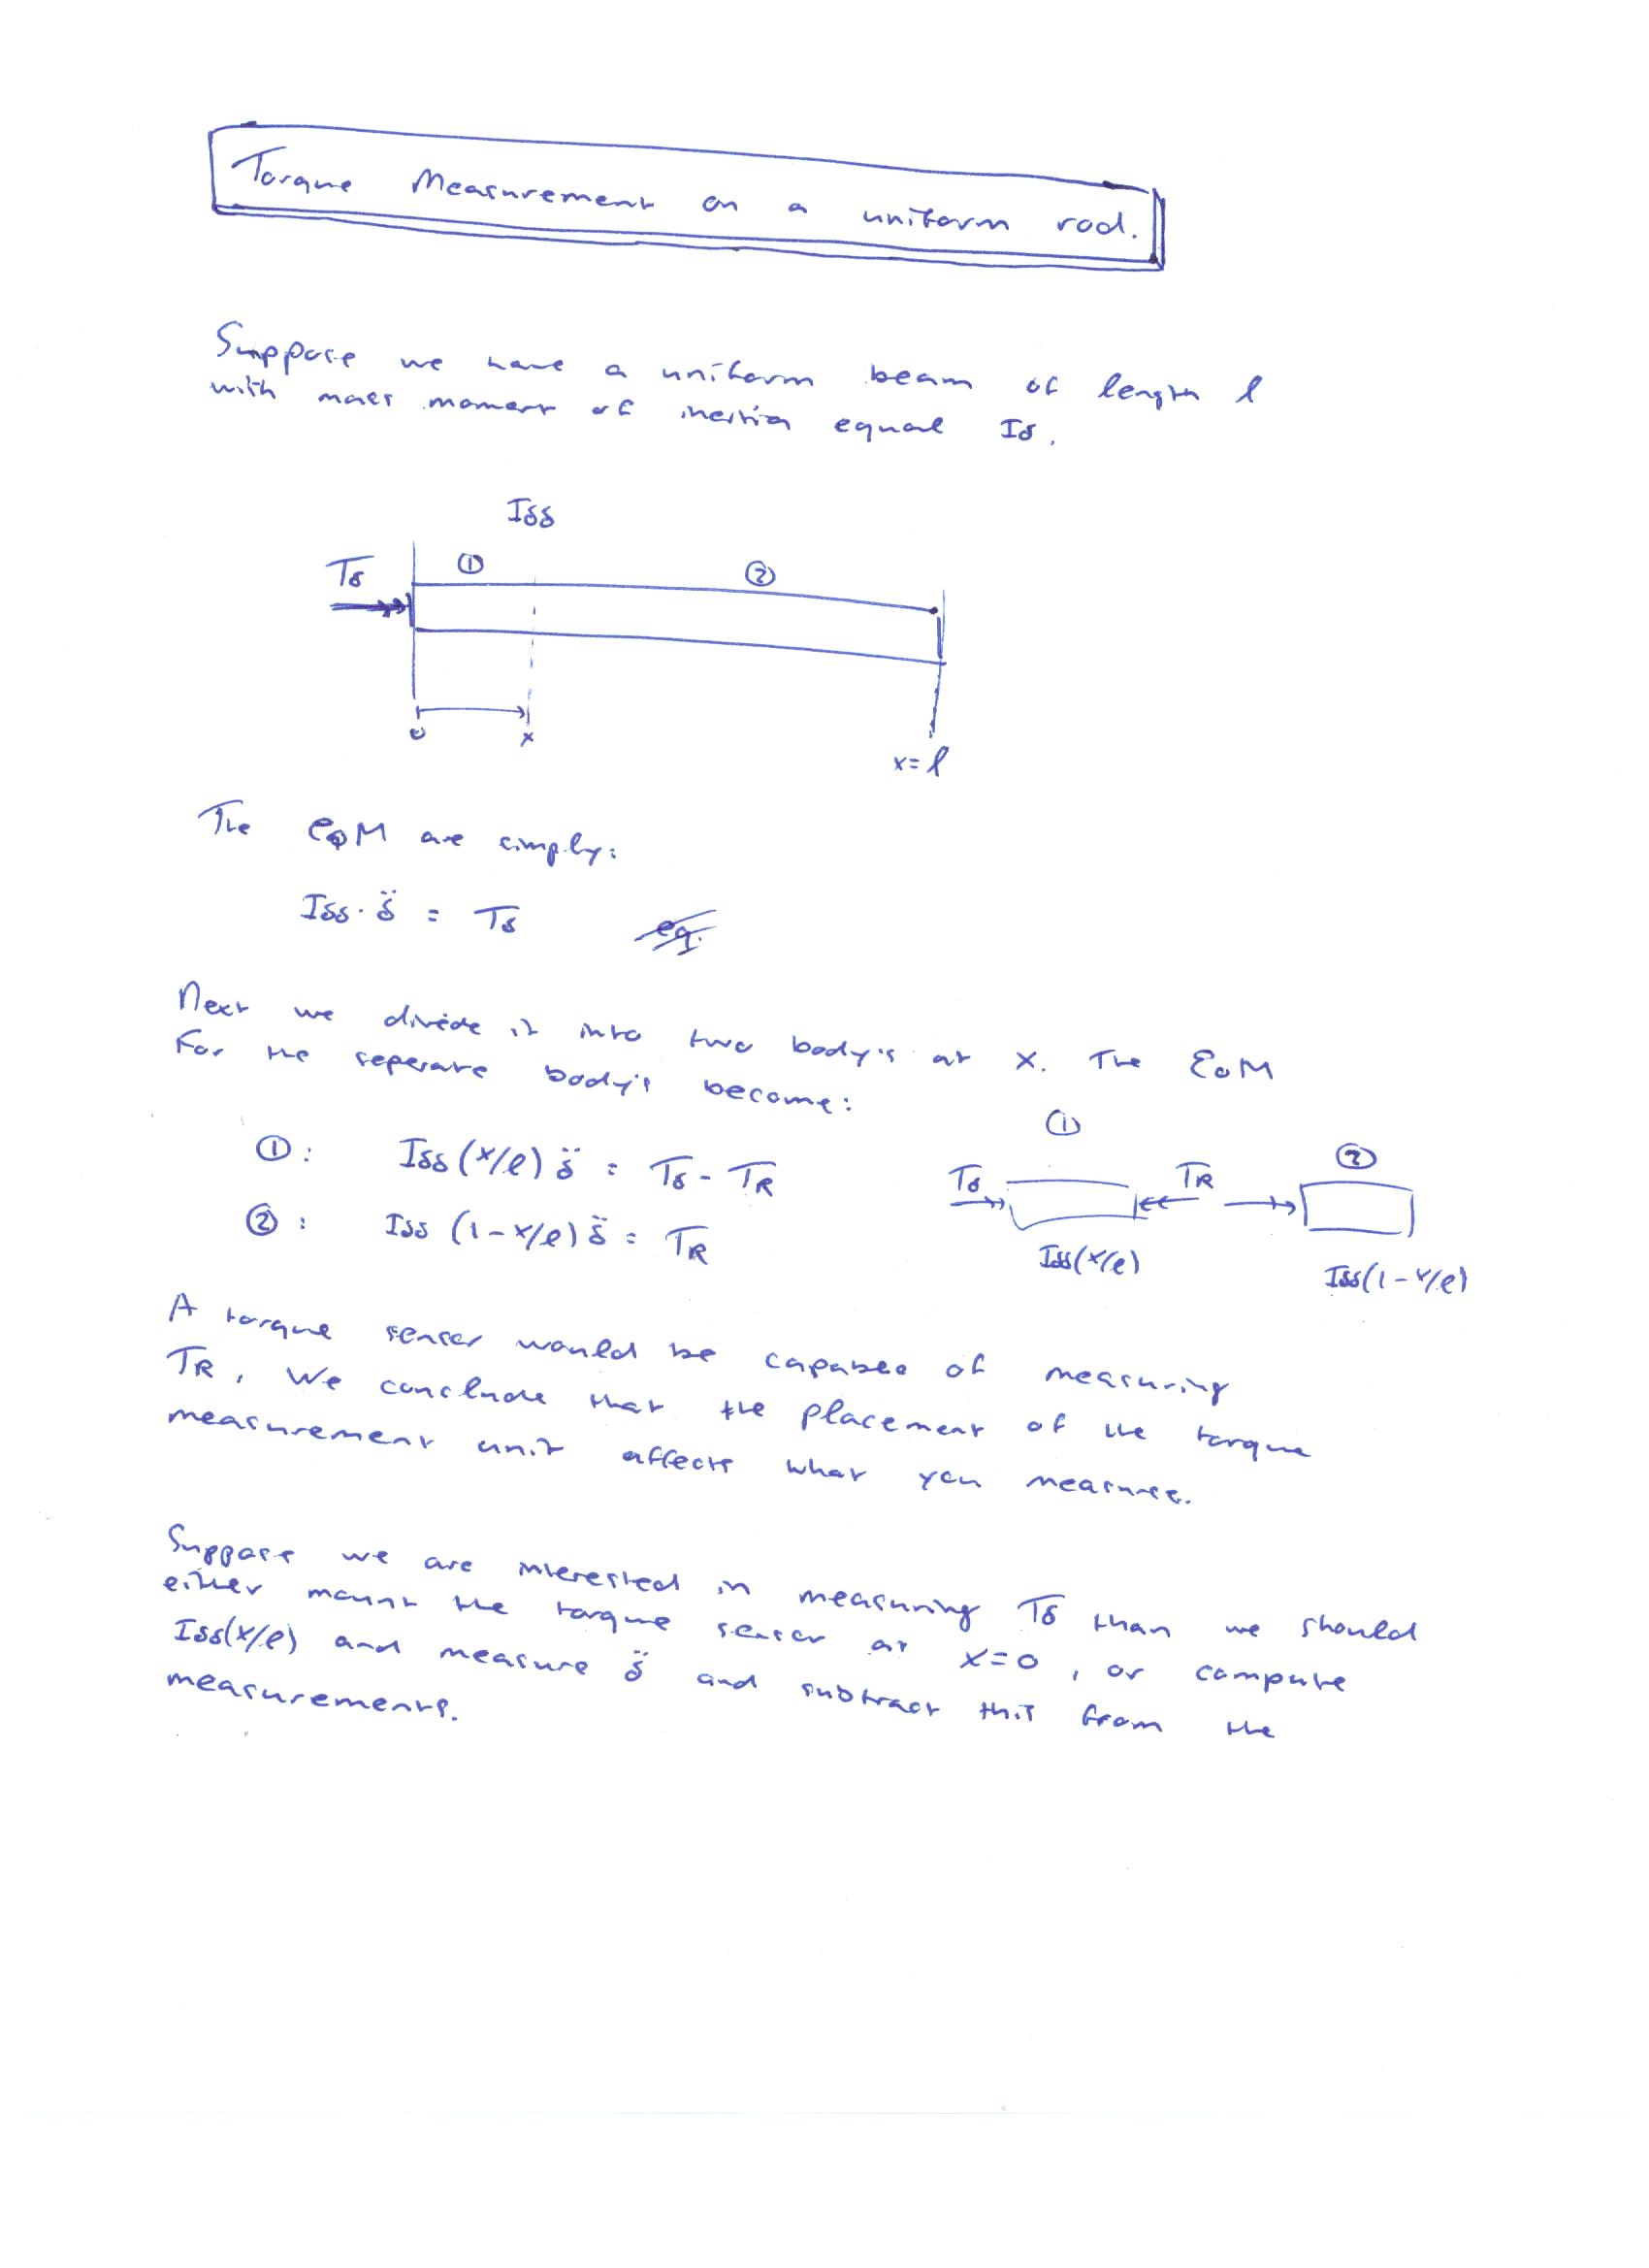 Torque Measurement on a uniform rod.
Suppose we have a uniform beam of length l
with mass moment of inertia equal Iδ.
Iδδ
Tδ ① ②
0 x
x=l
The EoM are simply:
Iδδ · δ̈ = Tδ eq.
Next we divide it into two body's at x. The EoM
For the seperate body's become:
①: Iδδ (x/l) δ̈ = Tδ - TR
②: Iδδ (1-x/l) δ̈ = TR
① ②
Tδ TR
Iδδ(x/l) Iδδ(1-x/l)
A torque senser would be capable of measuring
TR. We conclude that the placement of the torque
measurement unit affects what you measure.
Suppose we are interested in measuring Tδ than we should
either mount the torque senser at x=0, or compute
Iδδ(x/l) and measure δ̈ and subtract this from the
measurements.